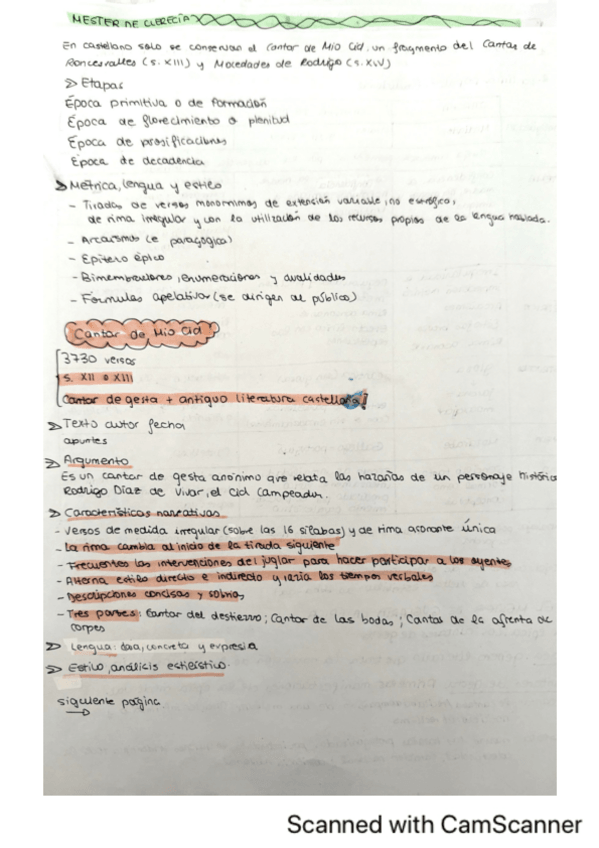 MESTER DE CLERECÍA
En castellano solo se conservan el Cantar de Mio Cid, un fragmento del Cantar de
Roncesvalles (s. XIII) y Mocedades de Rodrigo (s. XIV)
Etapas
Época primitiva o de formación
Época de florecimiento o plenitud
Época de prosificaciones
Época de decadencia
Métrica, lengua y estilo
- Tiradas de versos monorrimos de extensión variable, no estrófico,
de rima irregular y con la utilización de los recursos propios de la lengua hablada.
- Arcaísmos (e paragógica)
- Epíteto épico
- Bimembraciones, enumeraciones y dualidades
- Fórmulas apelativas (se dirigen al público)
Cantar de Mio Cid
3730 versos
s. XII o XIII
Cantar de gesta + antiguo literatura castellana!
Texto autor fecha
apuntes
Argumento
Es un cantar de gesta anónimo que relata las hazañas de un personaje histórico
Rodrigo Díaz de Vivar, el Cid Campeador.
Características narrativas
- Versos de medida irregular (sobre las 16 sílabas) y de rima asonante única
- La rima cambia al inicio de la tirada siguiente
- Frecuentes las intervenciones del juglar para hacer participar a los oyentes
- Alterna estilo directo e indirecto y varía los tiempos verbales
- Descripciones concisas y sobrias
- Tres partes: Cantar del destierro; Cantar de las bodas; Cantar de la afrenta de
corpes
Lengua: clara, concreta y expresiva
Estilo, análisis estilístico.
siguiente página
Scanned with CamScanner